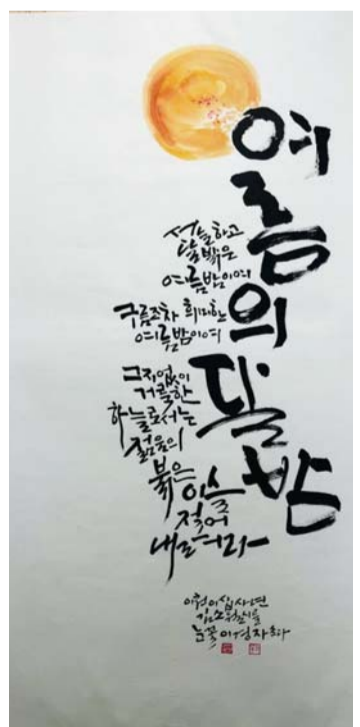 여름의 달밤
서늘하고
달 밝은
여름밤이여
구름조차 희미한
여름밤이여
그지없이
거룩한
하늘로서는
젊음의
붉은 이슬
젖어
내려라
이천이십사년
김소월시를
눈꽃 이영자 하다